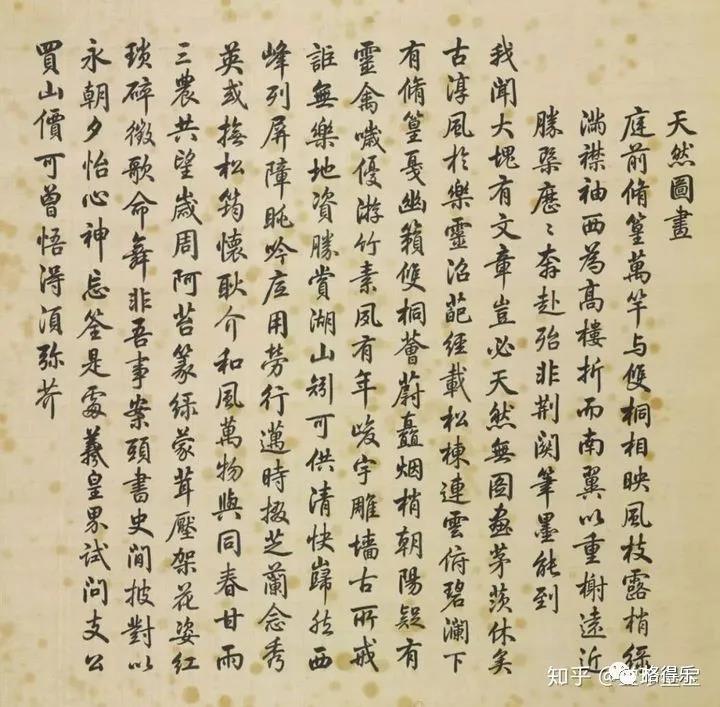 天然圖畫
庭前脩篁萬竿与雙桐相映風枝露梢綠
滿襟袖西為高樓折而南翼以重榭遠近
勝槩歷〻奔赴殆非荆關筆墨能到
我聞大塊有文章豈必天然無圖畫茅茨休矣
古淳風於樂靈沼葩經載松棟連雲俯碧瀾下
有脩篁戞幽籟雙桐薈蔚矗烟梢朝陽疑有
靈禽噦優游竹素夙有年峻宇雕墻古所戒
詎無樂地資勝賞湖山矧可供清快巋然西
峰列屏障眺吟底用勞行邁時掇芝蘭念秀
英或撫松筠懷耿介和風萬物與同春甘雨
三農共望歲周阿苔篆綠蒙茸壓架花姿紅
瑣碎徵歌命舞非吾事案頭書史閒披對以
永朝夕怡心神忘筌是處羲皇界試問支公
買山價可曾悟得須彌芥
知乎 @
略得乐